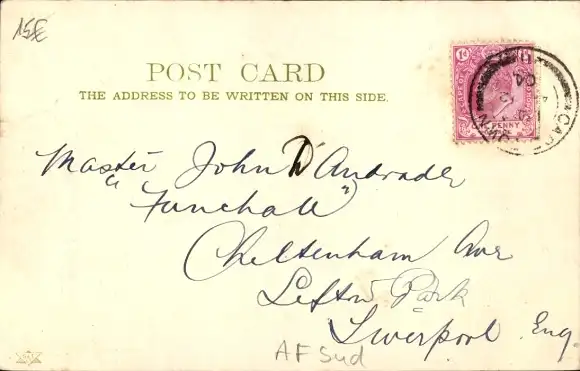 15€
POST CARD
THE ADDRESS TO BE WRITTEN ON THIS SIDE.
1d
PENNY
04
Master John D'Andrade
"Funchall"
Cheltenham Ave
Lefton Park
Liverpool Eng.
AF Sud